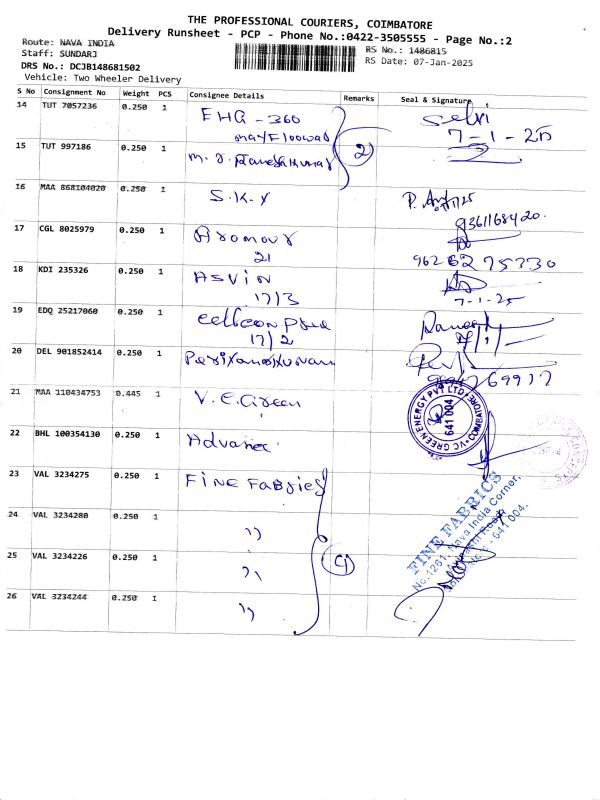 THE PROFESSIONAL COURIERS, COIMBATORE
Delivery Runsheet - PCP - Phone No.:0422-3505555 - Page No.:2
Route: NAVA INDIA
RS No.: 1486815
Staff: SUNDARJ
RS Date: 07-Jan-2025
DRS No.: DCJB148681502
Vehicle: Two Wheeler Delivery
S No Consignment No Weight PCS Consignee Details Remarks Seal & Signature
14 TUT 7057236 0.250 1 EHG - 360 Selvi
7-1-25
15 TUT 997186 0.250 1 2)
16 MAA 868104020 0.250 1 S.K.Y
9361168420.
17 CGL 8025979 0.250 1 Aromour
21 9626275330
18 KDI 235326 0.250 1 ASVIN
17/3 7-1-25
19 EDQ 25217060 0.250 1
17/2
20 DEL 901852414 0.250 1
21 MAA 110434753 0.445 1 V.C.Green
VC GREEN ENERGY PVT LTD
COIMBATORE
641 004
22 BHL 100354130 0.250 1 Advance
23 VAL 3234275 0.250 1 FINE FABRICS
24 VAL 3234280 0.250 1 ''
25 VAL 3234226 0.250 1 '' 4)
26 VAL 3234244 0.250 1 ''
FINE FABRICS
No.1261, Nava India Corner,
Avinashi Road,
641 004.